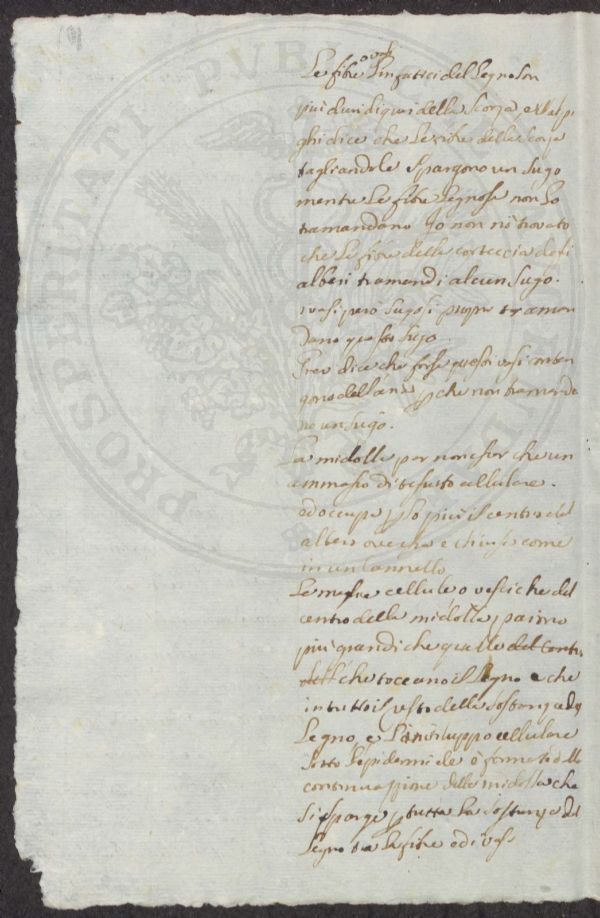 (9)
o vasi
Le fibre Linfatici del Legno son
più duri di quei della Scorza, e Malpi
ghi dice che Le fibre della Scorza
tagliandole Spargono un Sugo
mentre Le fibre Legnose non Lo
tramandano Io non hò trovato
che Le fibre della corteccia degli
alberi tramandi alcun Sugo.
i vasi però Sugosi propri traman
dano questo Sugo.
Grew dice che forse questi vasi conten
gono dell'aria pche non tramanda
no un Sugo.
La midolla par non esser che un
ammasso di tessuto cellulare.
ed occupa p lo più il centro del
albero ove sta e chiusa come
in un Cannello
Le maglie cellule o vesciche del
centro della midolla paiono
più grandi che quelle del Centr.
dell che toccano il Legno e che
in tutto il resto della Sostanza del
Legno, e L'inviluppo cellulare
Sotto L'epidermide è formato dalla
continuazione della midolla che
Si sparge p tutta La Sostanza del
Legno tra Le fibre ed i vasi
PROSPERITATI PUBL